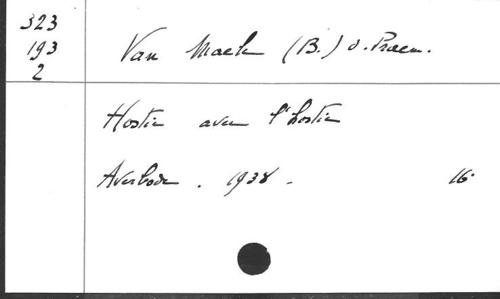 323
193
2
Van Maele (B.) o. Praem.
Hostie avec l'hostie
Averbode . 1938 . 16°